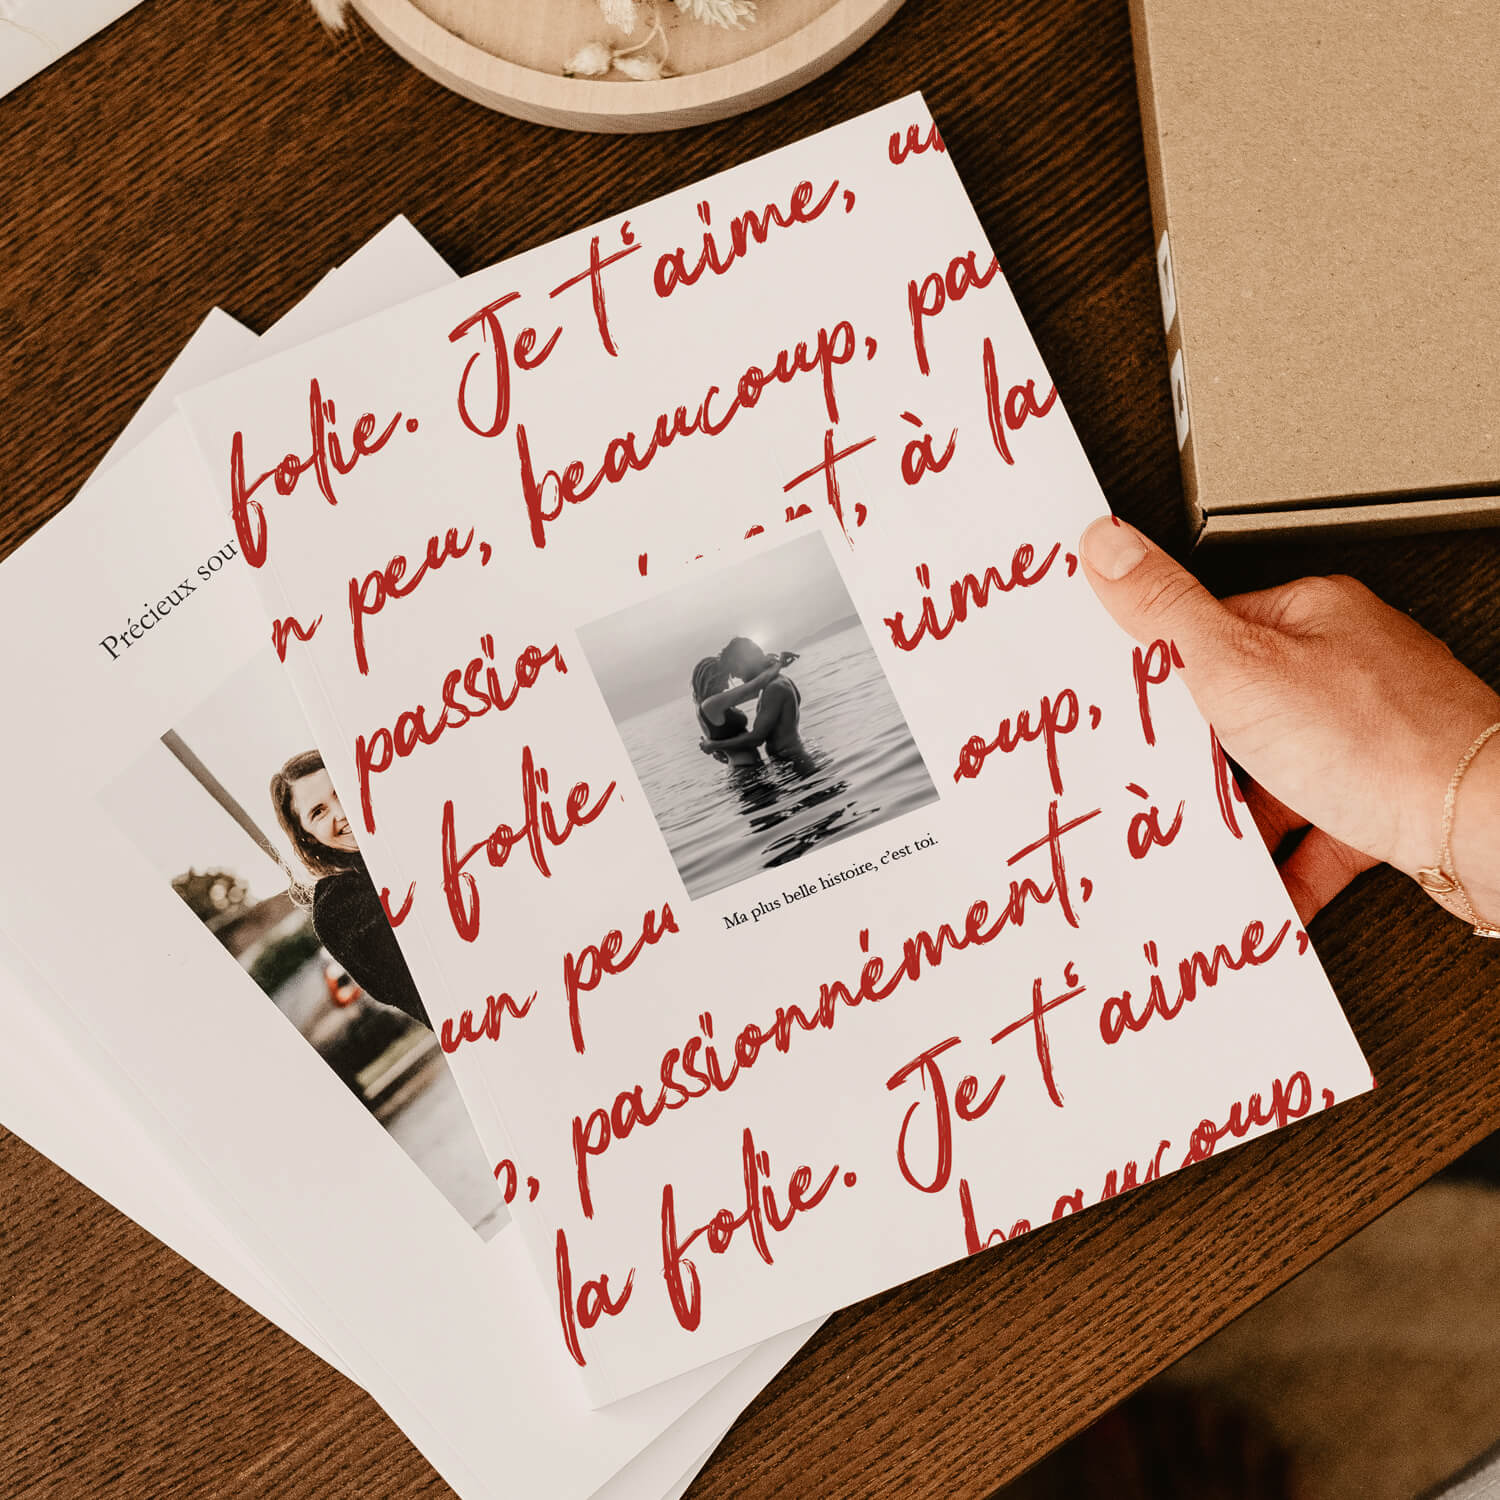 folie. Je t'aime, un
n peu, beaucoup, pas
passion ment, à la
folie. aime,
un peu oup, p
p, passionnément, à l
la folie. Je t'aime,
beaucoup,
Ma plus belle histoire, c'est toi.
Précieux sou